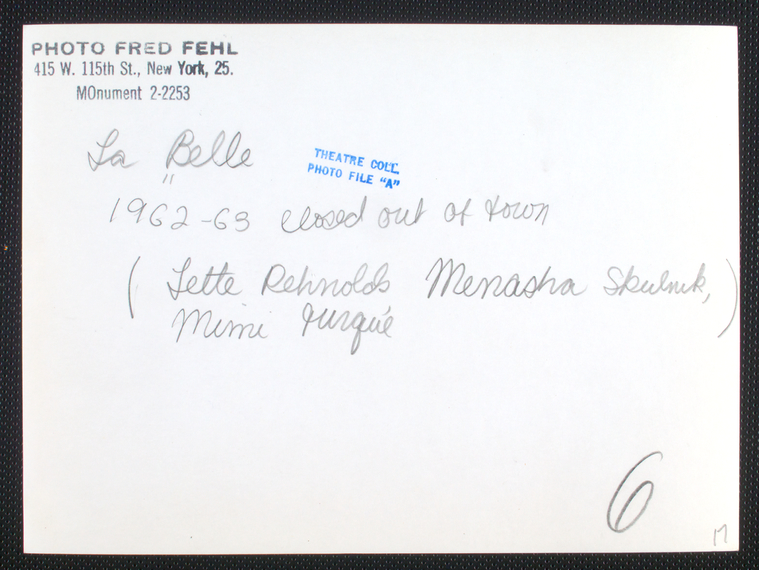 PHOTO FRED FEHL
415 W. 115th St., New York, 25.
MOnument 2-2253
La Belle
"
THEATRE COLL.
PHOTO FILE "A"
1962-63 closed out of town
( Jette Rehnolds Menasha Skulnik, )
Mimi Turque
6
M